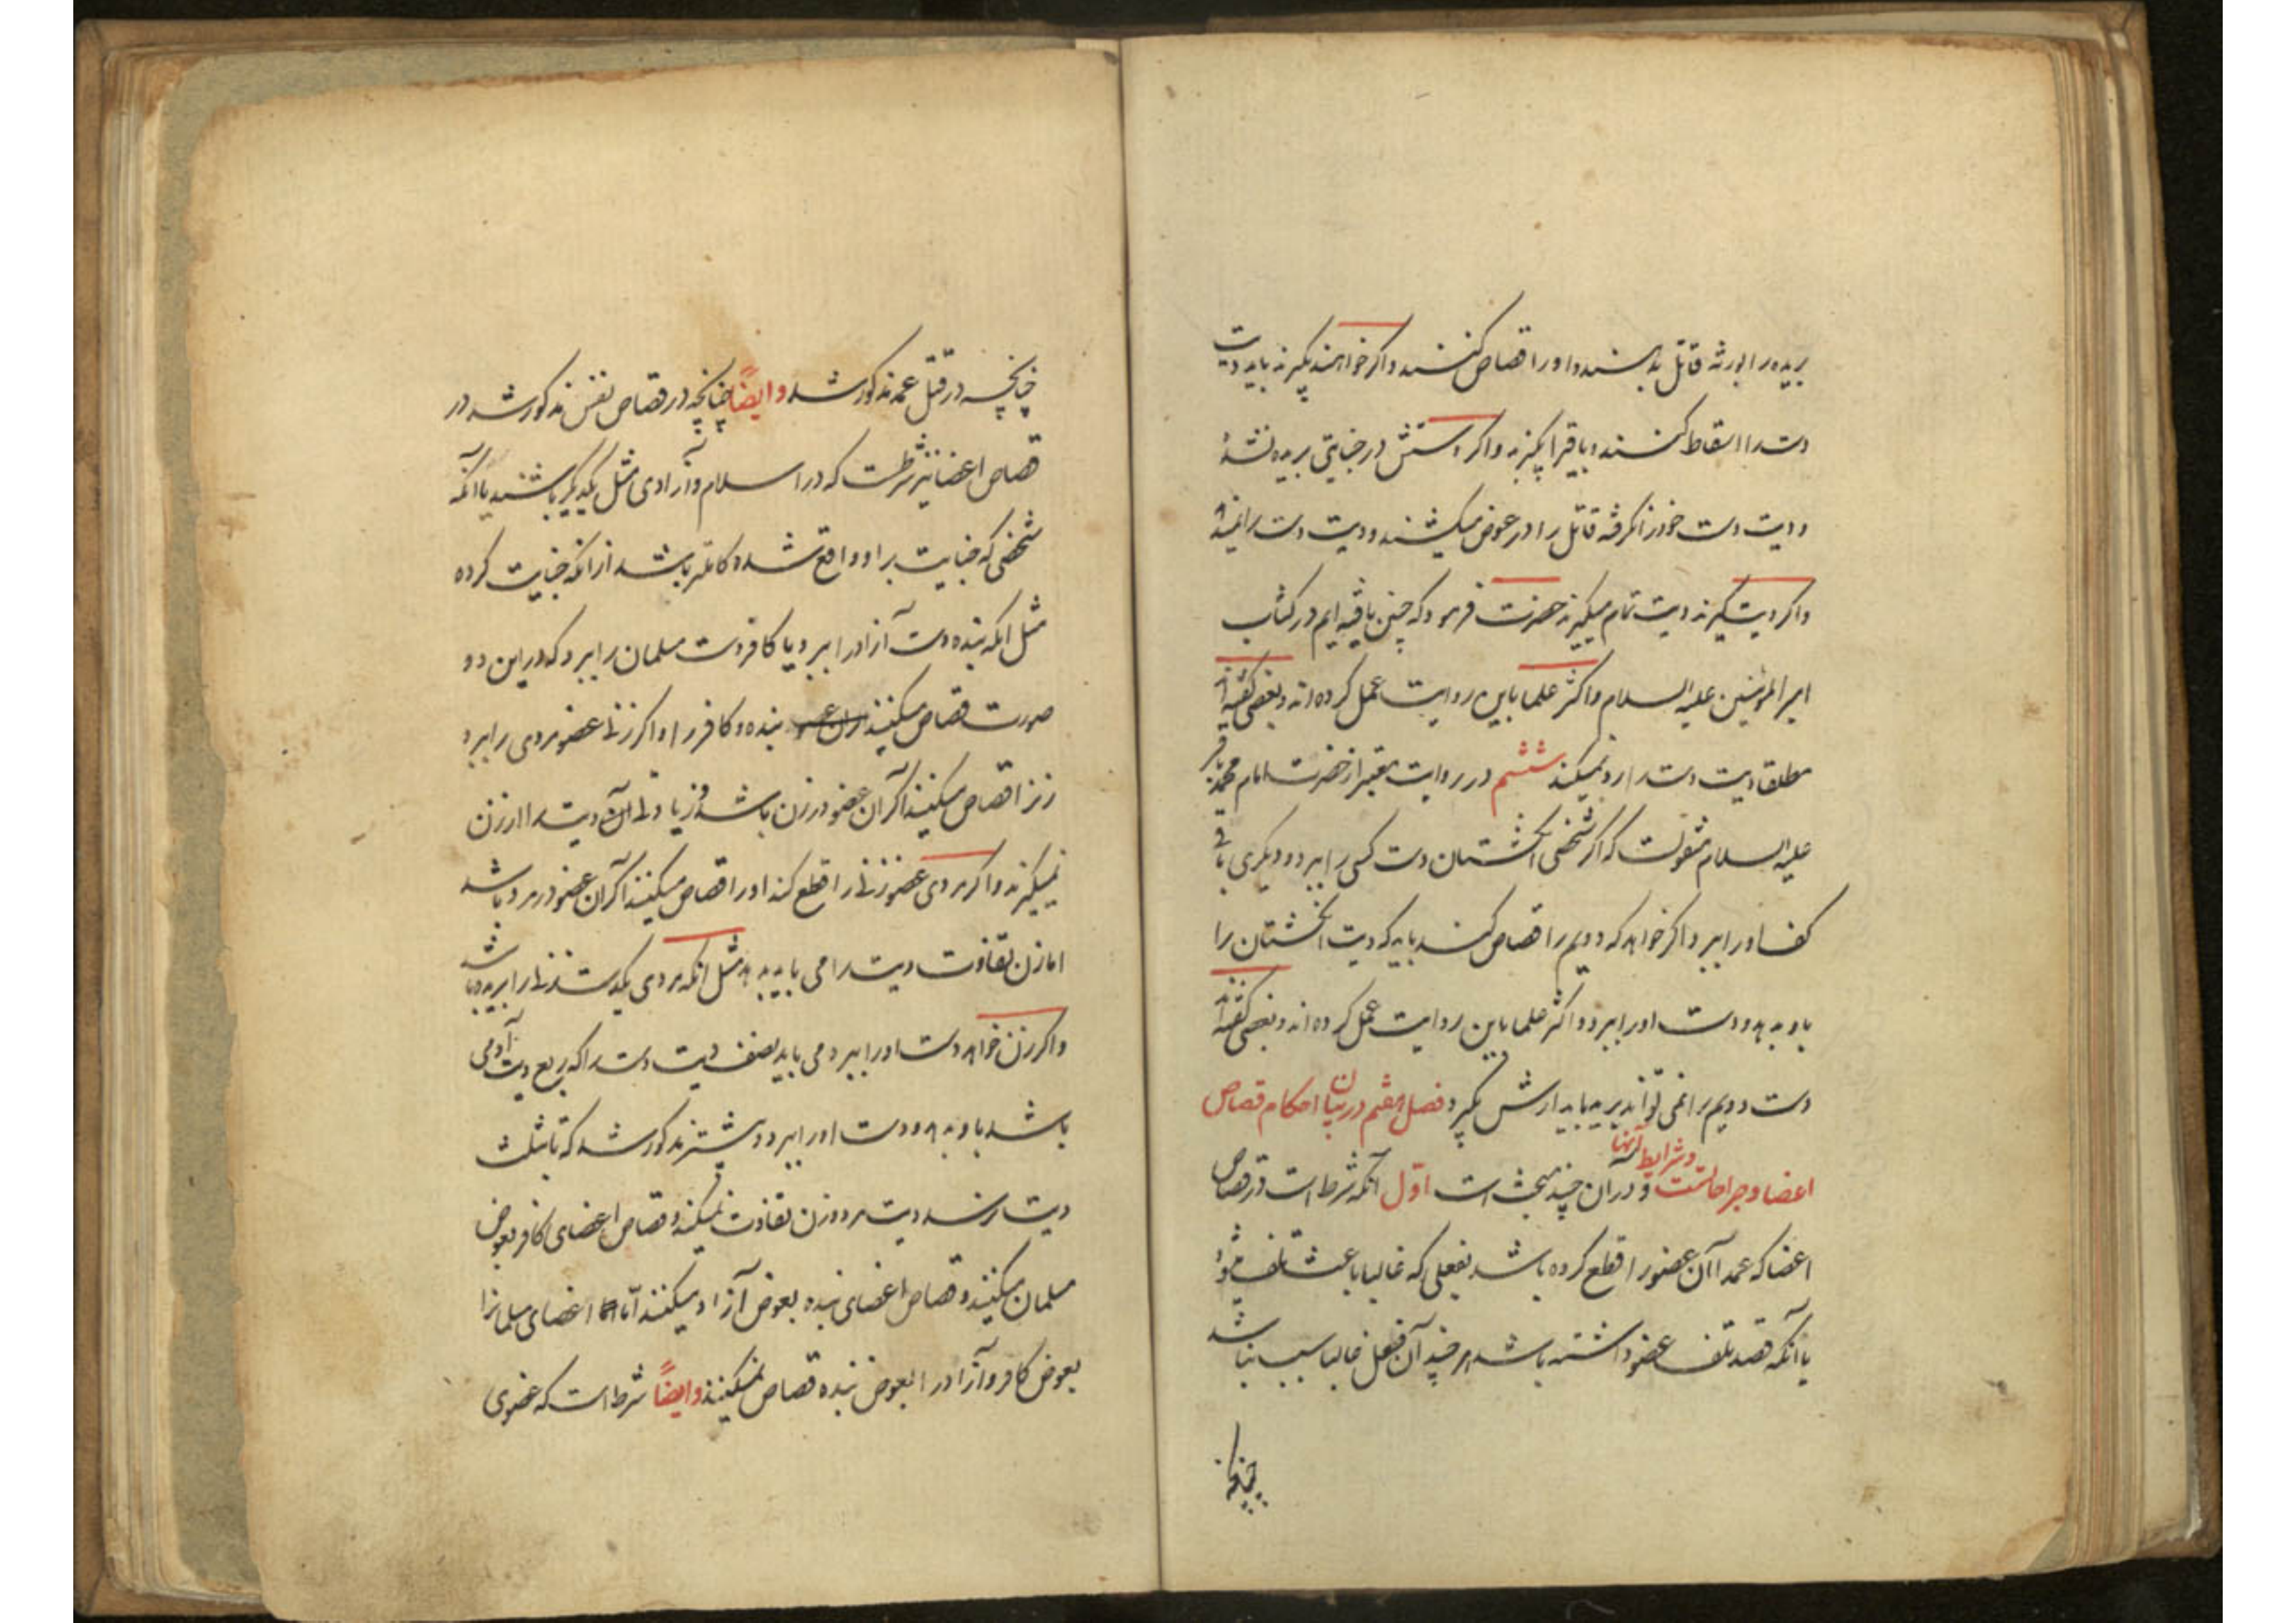 بریده را بورثه قاتل بدهند و او را قصاص کنند و اکر خواهند بکیرند باید دیت
دست را اسقاط کنند و باقی را بکیرند و اکر دستش در جنایتی بریده نشده
و دیت دست خود را نکرفته قاتل را در عوض میکشند و دیت دست را نمیدهند
و اکر دیت کیرند دیت تمام میکیرند حضرت فرمود که چنین یافته ایم در کتاب
امیر المومنین علیه السلام و اکثر علما باین روایت عمل کرده اند و بعضی کفته اند
مطلقا دیت دست را رد نمیکند ششم در روایت معتبر از حضرت امام محمد باقر
علیه السلام منقولست که اکر شخصی انکشتان دست کسی را ببرد و دیکری باقی
کف او را ببرد اکر خواهد که دویم را قصاص کند باید که دیت انکشتان را
باو بدهد و دست او را ببرد و اکثر علما باین روایت عمل کرده اند و بعضی کفته اند
دست دویم را نمی تواند برید باید ارش بکیرد فصل هفتم در بیان احکام قصاص
اعضا و جراحاتست و شرایط آنها و در آن چند بحث است اوّل آنکه شرط است در قصاص
اعضا که عمدا آن عضو را قطع کرده باشد بفعلی که غالبا باعث تلف میشود
یا آنکه قصد تلف عضو داشته باشد هر چند آن فعل غالبا سبب نباشد
چنانچه
چنانچه در قتل عمد مذکور شد و ایضاً چنانچه در قصاص نفس مذکور شد در
قصاص اعضا نیز شرطست که در اسلام و آزادی مثل یکدیکر باشند یا آنکه
شخصی که جنایت بر او واقع شده کاملتر باشد از انکه جنایت کرده
مثل انکه بنده دست آزاد را ببرد یا کافر دست مسلمان را ببرد که در این دو
صورت قصاص میکنند بنده و کافر را و اکر زنی عضو مردی را ببرد
زنرا قصاص میکنند اکر آن عضو در زن باشد و زیادتی آن دیت را از زن
نمیکیرند و اکر مردی عضو زنی را قطع کند او را قصاص میکنند اکر آن عضو در مرد باشد
اما زن تفاوت دیت را می باید بدهد مثل انکه مردی یکدست زنی را بریده باشد
و اکر زن خواهد دست او را ببرد می باید نصف دیت دست را که ربع دیت آدمی
باشد باو بدهد و دست او را ببرد و پیشتر مذکور شد که تا بثلث
دیت نرسد دیت مرد و زن تفاوت نمیکند و قصاص اعضای کافر بعوض
مسلمان میکنند و قصاص اعضای بنده بعوض آزاد میکنند امّا اعضای مسلمانرا
بعوض کافر و آزاد را بعوض بنده قصاص نمیکنند و ایضاً شرط است که عضوی